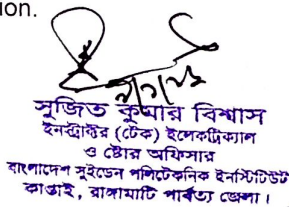 ion.
সুজিত কুমার বিশ্বাস
ইনস্ট্রাক্টর (টেক) ইলেকট্রিক্যাল
ও ষ্টোর অফিসার
বাংলাদেশ সুইডেন পলিটেকনিক ইনস্টিটিউট
কাপ্তাই, রাঙ্গামাটি পার্বত্য জেলা।